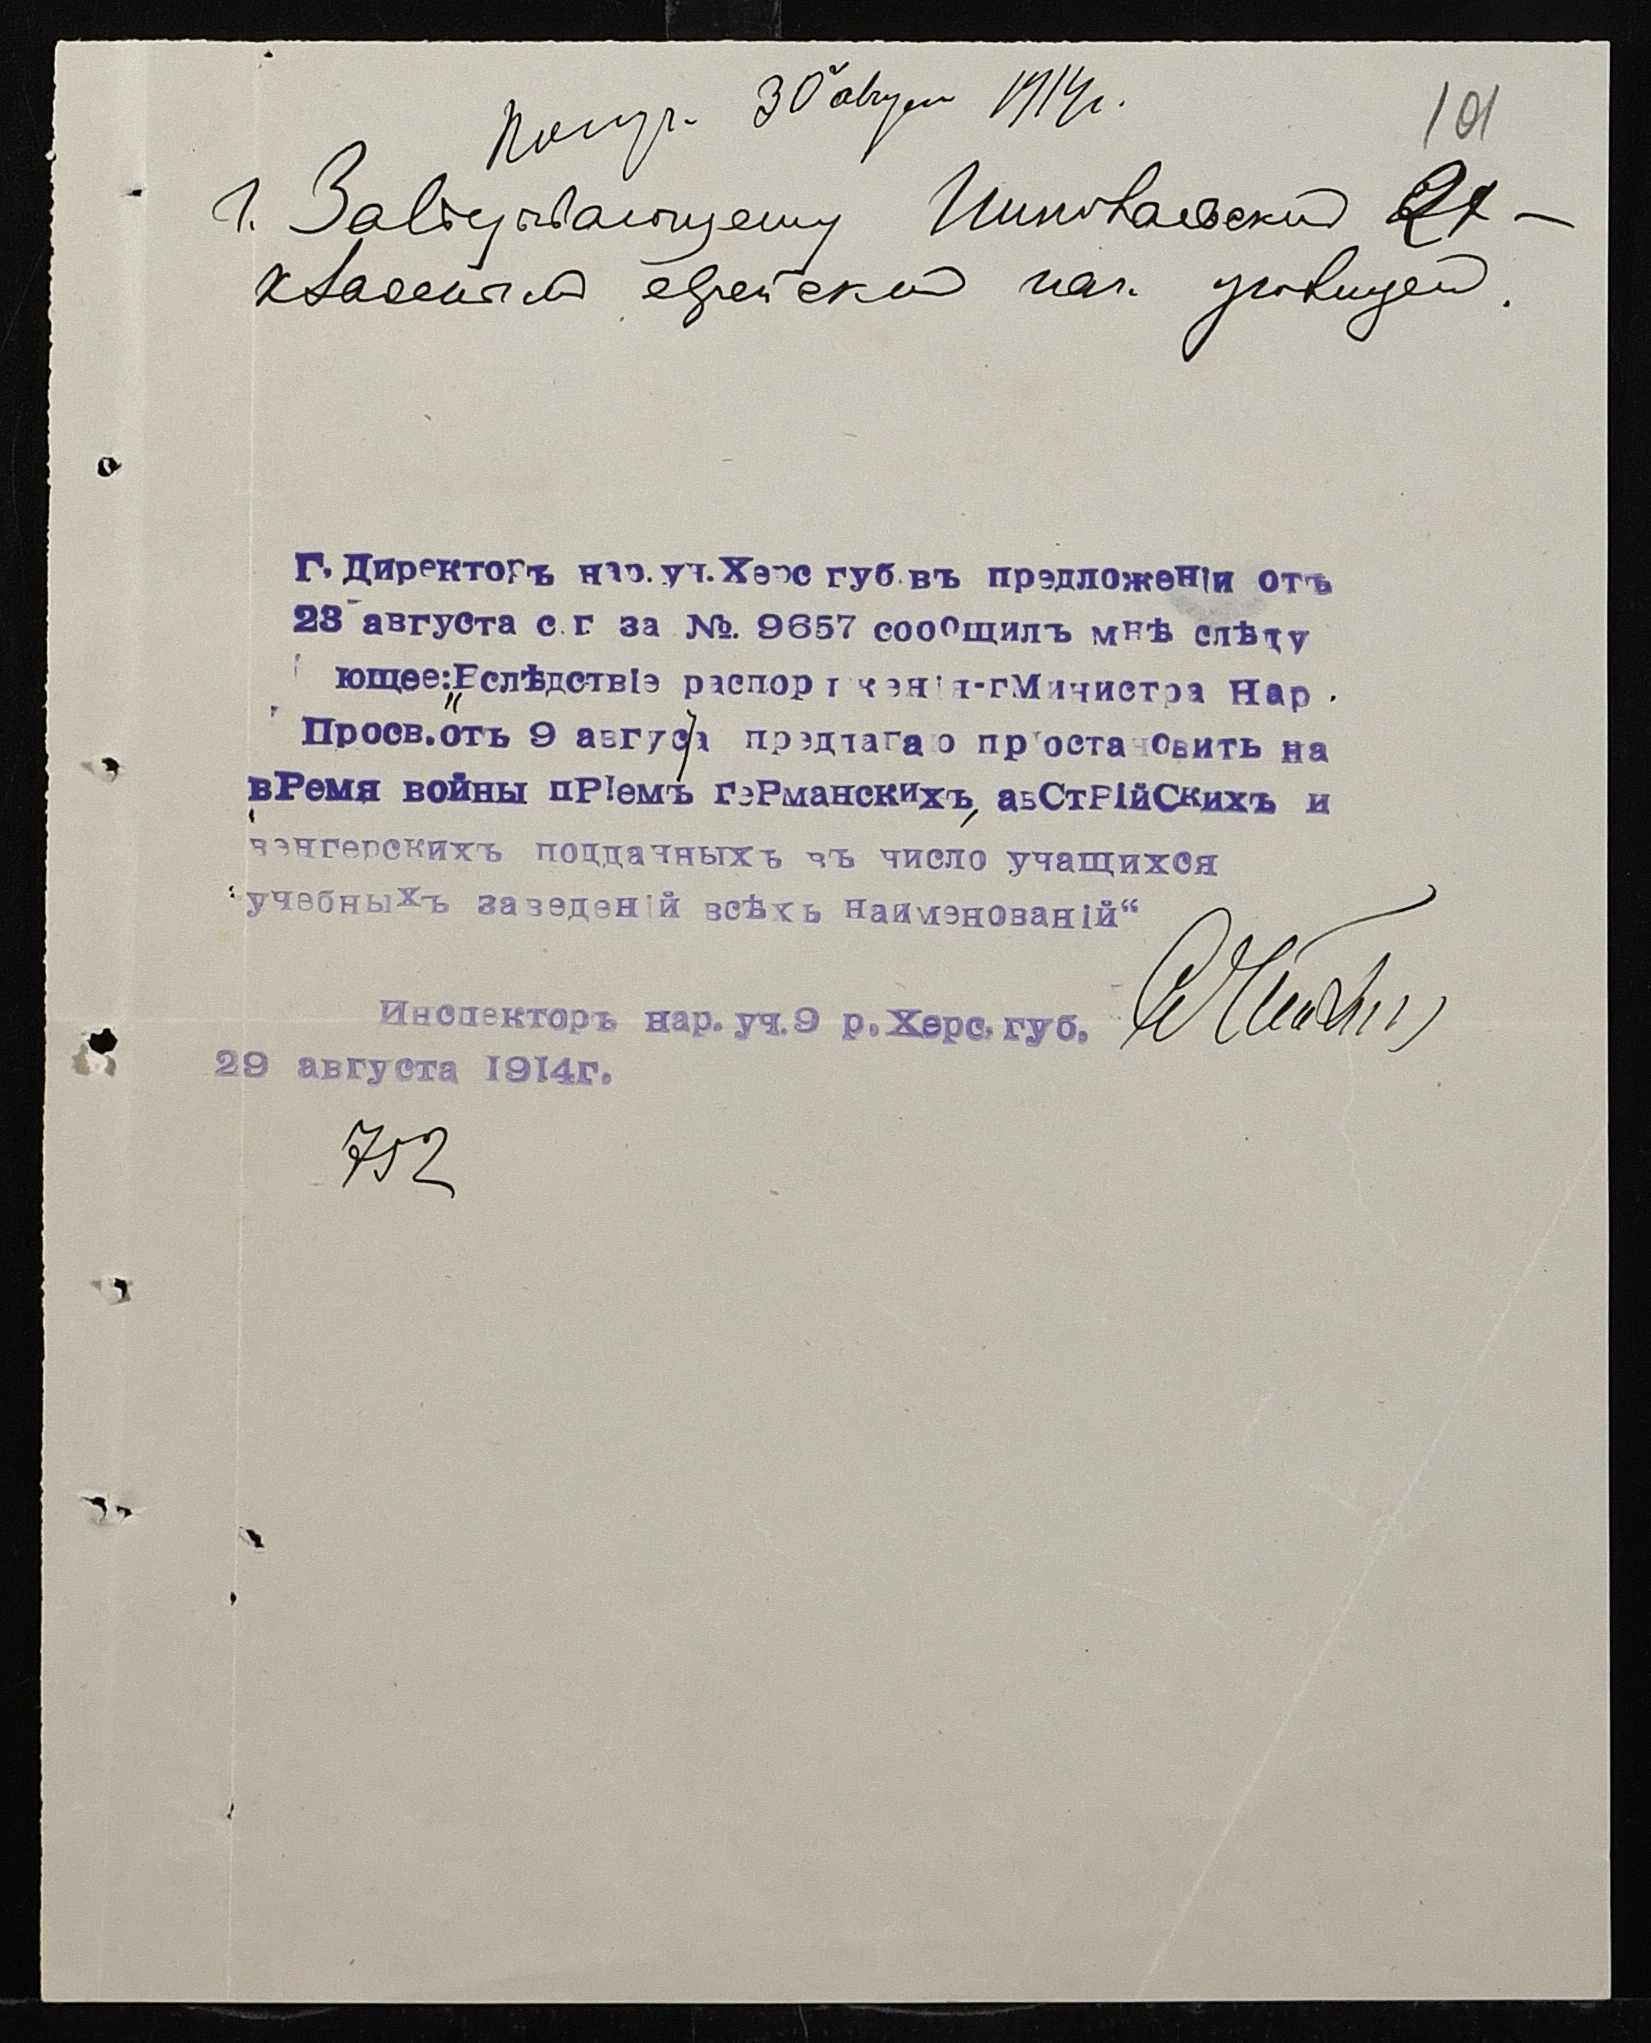 Получ. 30 августа 1914г.
101
Г. Завѣдывающему Николаевскимъ 2х-
класснымъ еврейскимъ нач. училищемъ.
Г. Директоръ нар. уч. Херс губ. въ предложеніи отъ
23 августа с. г. за №. 9657 сообщилъ мнѣ слѣду
ющее: „Вслѣдствіе распоряженія г Министра Нар.
Просв. отъ 9 августа предлагаю пріостановить на
время войны пріемъ германскихъ, австрійскихъ и
венгерскихъ подданныхъ въ число учащихся
учебныхъ заведеній всѣхъ наименованій“
Инспекторъ нар. уч. 9 р. Херс. губ.
29 августа 1914г.
752